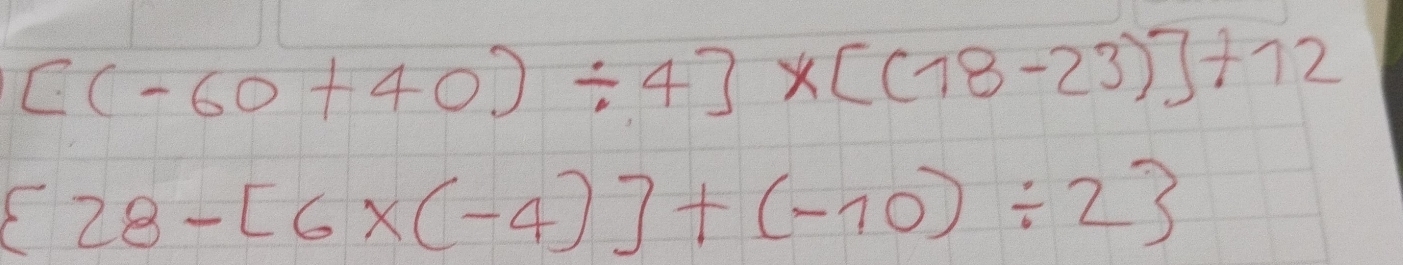 [(-60+40) ÷ 4] ×[(18-23)]+12
{28-[6×(-4)]+(-10)÷2}